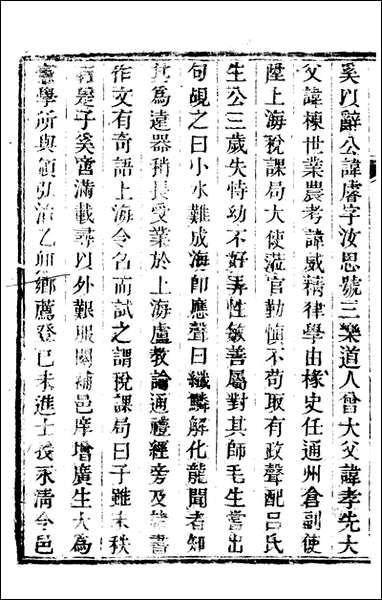 奚以辭公諱睿字汝思號三樂道人曾大父諱孝先大
父諱棟世業農考諱威精律學由椽史任通州倉副使
陞上海稅課局大使蒞官勤慎不苟取有政聲配呂氏
生公三歲失恃幼不好弄性敏善屬對其師毛生嘗出
句覘之曰小水難成海卽應聲曰纖鱗解化龍聞者知
其為遠器稍長受業於上海盧教諭通禮經旁及諸書
作文有奇語上海令名而試之謂稅課局曰子雖末秩
有是子奚啻滿載尋以外艱服闋補邑庠增廣生大為
學所與領弘治乙卯鄉薦登己未進士授永淸令邑